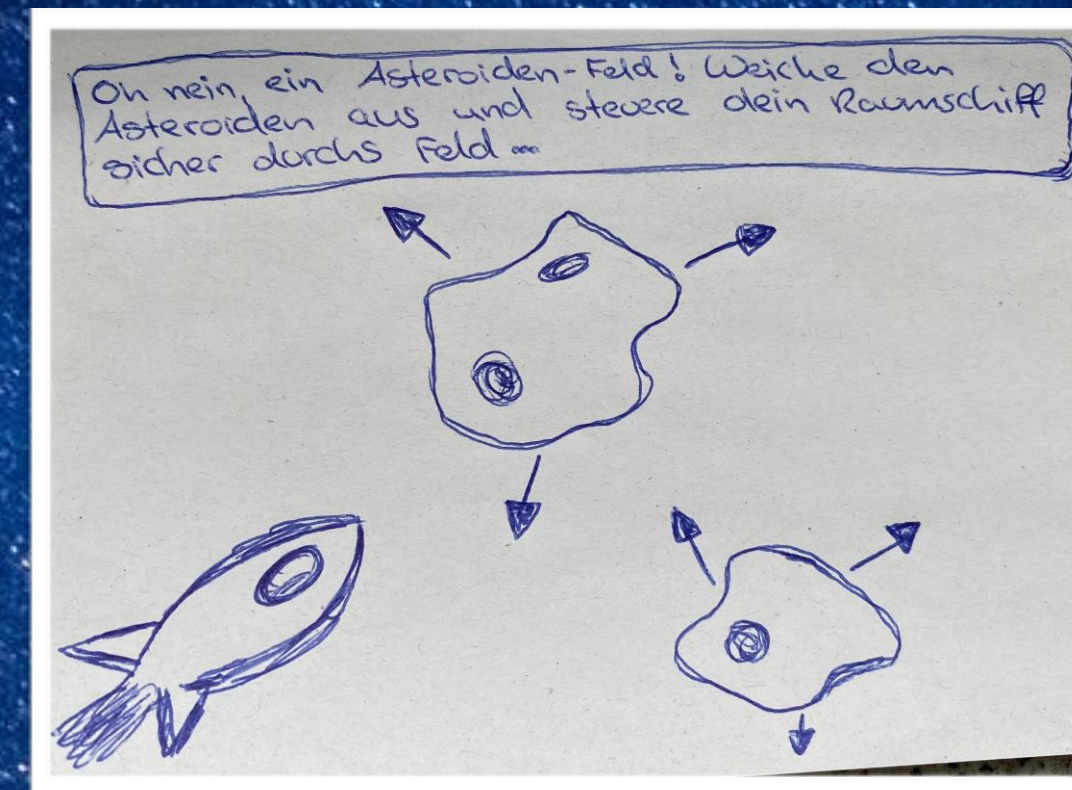 Oh nein, ein Asteroiden-Feld! Weiche den
Asteroiden aus und steuere dein Raumschiff
sicher durchs Feld...